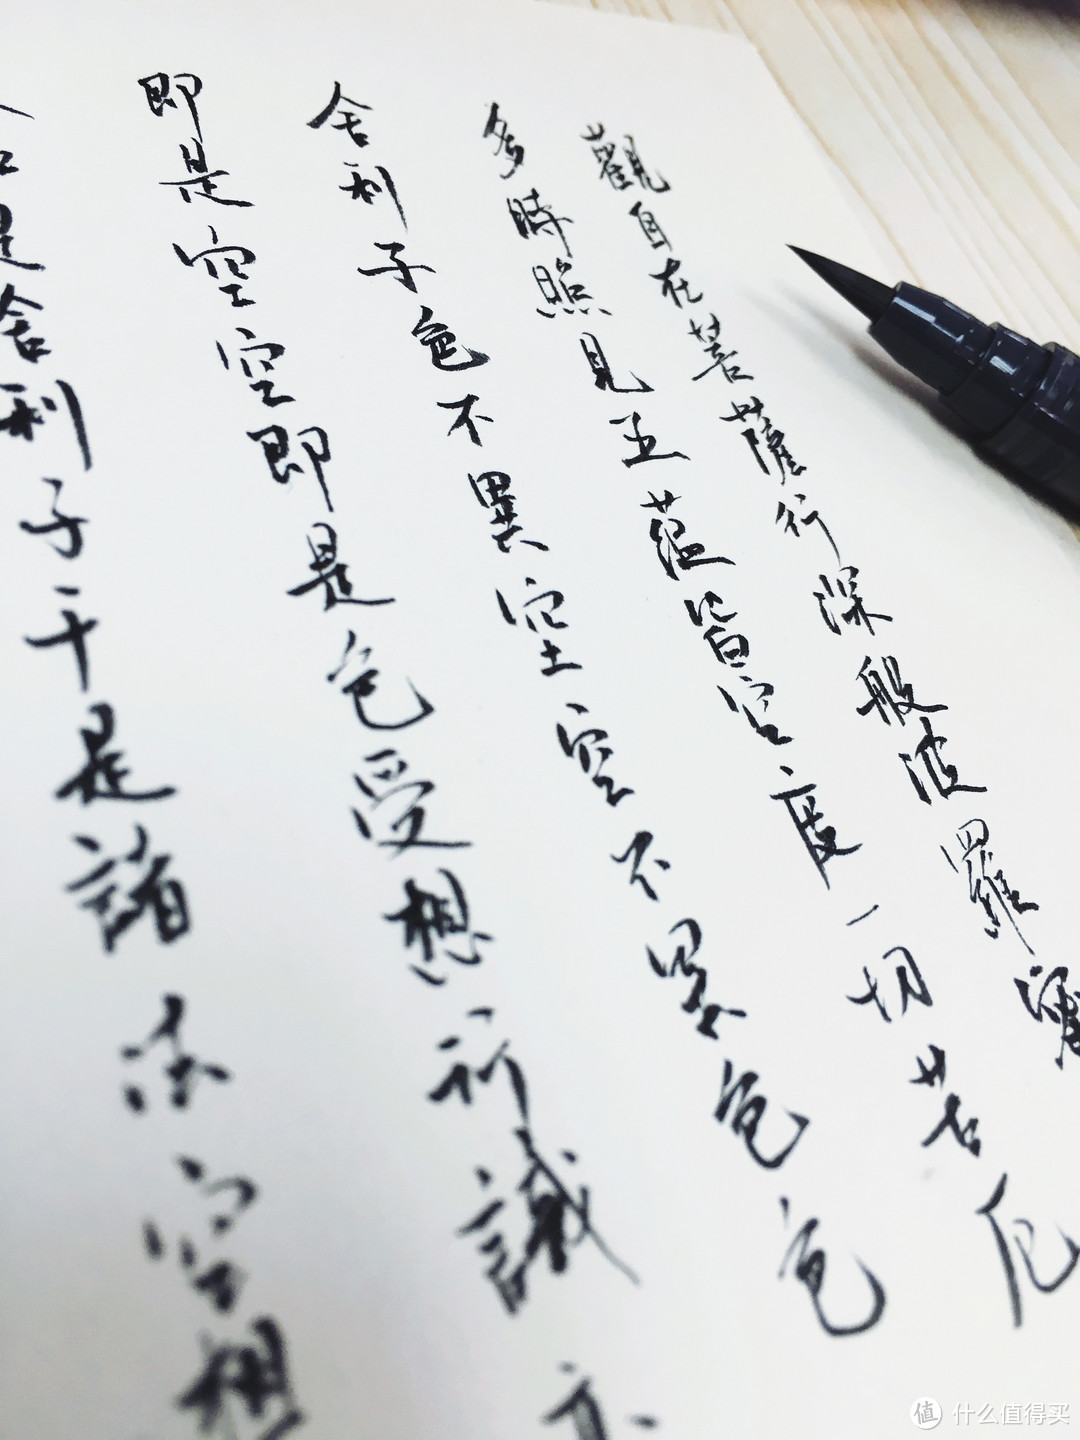 觀自在菩薩行深般波羅蜜
多時照見五蘊皆空度一切苦厄
舍利子色不異空空不異色色
即是空空即是色受想行識亦
如是舍利子干是諸法空相
值 什么值得买